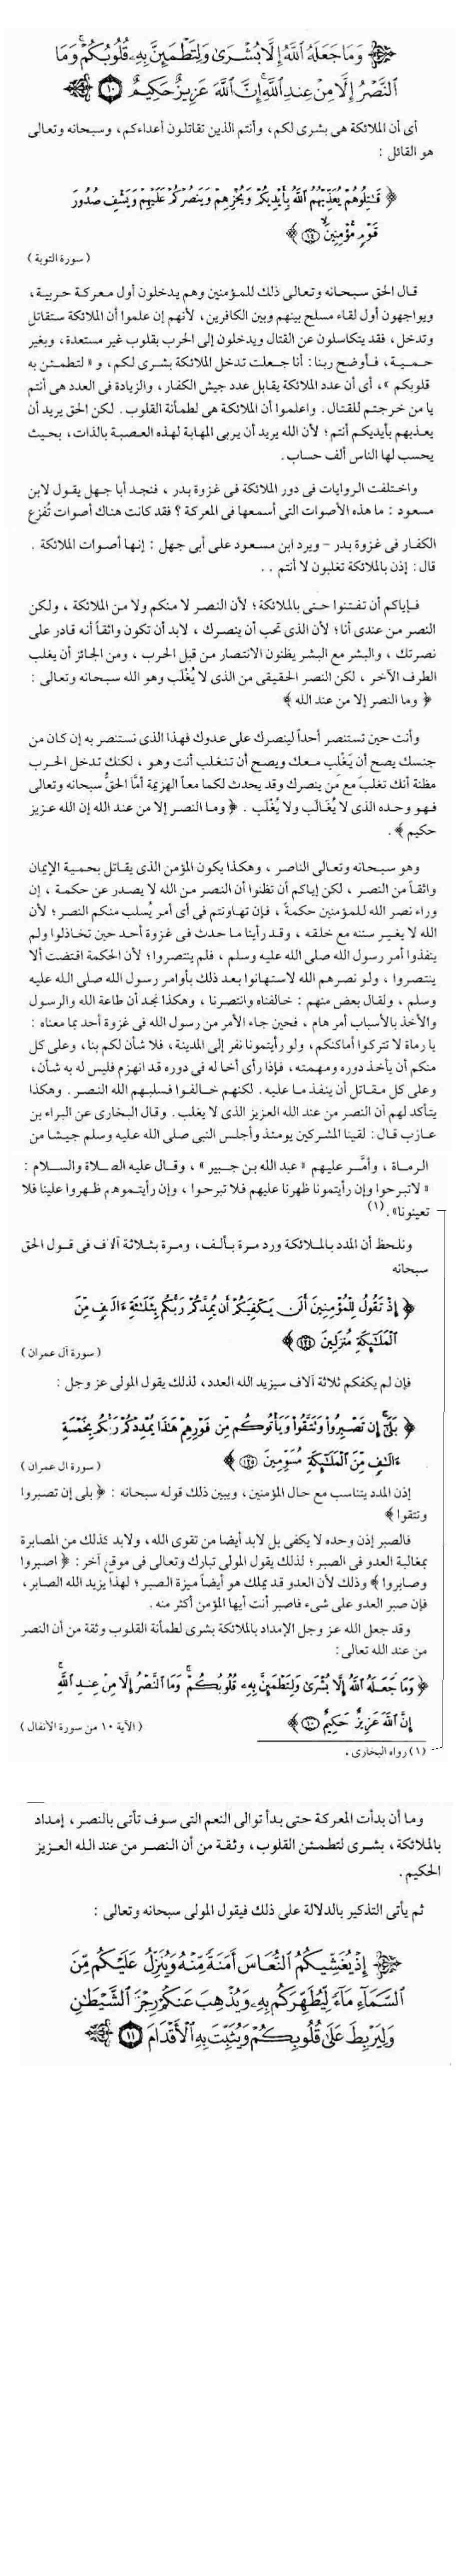 وَمَا جَعَلَهُ ٱللَّهُ إِلَّا بُشْرَىٰ وَلِتَطْمَئِنَّ بِهِۦ قُلُوبُكُمْ ۚ وَمَا
ٱلنَّصْرُ إِلَّا مِنْ عِندِ ٱللَّهِ ۚ إِنَّ ٱللَّهَ عَزِيزٌ حَكِيمٌ ١٠
أى أن الملائكة هى بشرى لكم، وأنتم الذين تقاتلون أعداءكم، وسبحانه وتعالى
هو القائل :
﴿ قَٰتِلُوهُمْ يُعَذِّبْهُمُ ٱللَّهُ بِأَيْدِيكُمْ وَيُخْزِهِمْ وَيَنصُرْكُمْ عَلَيْهِمْ وَيَشْفِ صُدُورَ
قَوْمٍ مُّؤْمِنِينَ ١٤ ﴾
( سورة التوبة )
قال الحق سبحانه وتعالى ذلك للمؤمنين وهم يدخلون أول معركة حربية،
ويواجهون أول لقاء مسلح بينهم وبين الكافرين، لأنهم إن علموا أن الملائكة ستقاتل
وتدخل، فقد يتكاسلون عن القتال ويدخلون إلى الحرب بقلوب غير مستعدة، وبغير
حمية، فأوضح ربنا: أنا جعلت تدخل الملائكة بشرى لكم، و « لتطمئن به
قلوبكم »، أى أن عدد الملائكة يقابل عدد جيش الكفار، والزيادة فى العدد هى أنتم
يا من خرجتم للقتال. واعلموا أن الملائكة هى لطمأنة القلوب. لكن الحق يريد أن
يعذبهم بأيديكم أنتم؛ لأن الله يريد أن يربى المهابة لهذه العصبة بالذات، بحيث
يحسب لها الناس ألف حساب.
واختلفت الروايات فى دور الملائكة فى غزوة بدر ، فنجد أبا جهل يقول لابن
مسعود : ما هذه الأصوات التى أسمعها فى المعركة ؟ فقد كانت هناك أصوات تُفزع
الكفار فى غزوة بدر – ويرد ابن مسعود على أبى جهل : إنها أصوات الملائكة .
قال : إذن بالملائكة تغلبون لا أنتم . .
فإياكم أن تفتنوا حتى بالملائكة؛ لأن النصر لا منكم ولا من الملائكة ، ولكن
النصر من عندى أنا؛ لأن الذى تحب أن ينصرك ، لابد أن تكون واثقاً أنه قادر على
نصرتك ، والبشر مع البشر يظنون الانتصار من قبل الحرب ، ومن الجائز أن يغلب
الطرف الآخر ، لكن النصر الحقيقى من الذى لا يُغْلَب وهو الله سبحانه وتعالى :
﴿ وما النصر إلا من عند الله ﴾
وأنت حين تستنصر أحداً لينصرك على عدوك فهذا الذى تستنصر به إن كان من
جنسك يصح أن يَغْلِب معك ويصح أن تنغلب أنت وهو ، لكنك تدخل الحرب
مظنة أنك تغلب مع مَن ينصرك وقد يحدث لكما معاً الهزيمة أمَّا الحقُّ سبحانه وتعالى
فهو وحده الذى لا يُغَالَب ولا يُغْلَب . ﴿ وما النصر إلا من عند الله إن الله عزيز
حكيم ﴾ .
وهو سبحانه وتعالى الناصر ، وهكذا يكون المؤمن الذى يقاتل بحمية الإيمان
واثقاً من النصر ، لكن إياكم أن تظنوا أن النصر من الله لا يصدر عن حكمة ، إن
وراء نصر الله للمؤمنين حكمةً ، فإن تهاونتم فى أى أمر يُسلب منكم النصر؛ لأن
الله لا يغير سننه مع خلقه ، وقد رأينا ما حدث فى غزوة أحد حين تخاذلوا ولم
ينفذوا أمر رسول الله صلى الله عليه وسلم ، فلم ينتصروا؛ لأن الحكمة اقتضت ألا
ينتصروا ، ولو نصرهم الله لاستهانوا بعد ذلك بأوامر رسول الله صلى الله عليه
وسلم ، ولقال بعض منهم : خالفناه وانتصرنا ، وهكذا نجد أن طاعة الله والرسول
والأخذ بالأسباب أمر هام ، فحين جاء الأمر من رسول الله فى غزوة أحد بما معناه :
يا رماة لا تتركوا أماكنكم، ولو رأيتمونا نفر إلى المدينة، فلا شأن لكم بنا، وعلى كل
منكم أن يأخذ دوره ومهمته، فإذا رأى أخا له فى دوره قد انهزم فليس له به شأن،
وعلى كل مقاتل أن ينفذ ما عليه. لكنهم خالفوا فسلبهم الله النصر. وهكذا
يتأكد لهم أن النصر من عند الله العزيز الذى لا يغلب. وقال البخارى عن البراء بن
عازب قال: لقينا المشركين يومئذ وأجلس النبى صلى الله عليه وسلم جيشا من
الرماة ، وأمَّر عليهم « عبد الله بن جبير » ، وقال عليه الصلاة والسلام :
« لاتبرحوا وإن رأيتمونا ظهرنا عليهم فلا تبرحوا ، وإن رأيتموهم ظهروا علينا فلا
تعينونا».(١)
ونلحظ أن المدد بالملائكة ورد مرة بألف، ومرة بثلاثة آلاف فى قول الحق
سبحانه
﴿ إِذْ تَقُولُ لِلْمُؤْمِنِينَ أَلَن يَكْفِيَكُمْ أَن يُمِدَّكُمْ رَبُّكُم بِثَلَٰثَةِ ءَالَٰفٍ مِّنَ
ٱلْمَلَٰٓئِكَةِ مُنزَلِينَ ١٢٤ ﴾
( سورة آل عمران )
فإن لم يكفكم ثلاثة آلاف سيزيد الله العدد، لذلك يقول المولى عز وجل :
﴿ بَلَىٰٓ ۚ إِن تَصْبِرُوا۟ وَتَتَّقُوا۟ وَيَأْتُوكُم مِّن فَوْرِهِمْ هَٰذَا يُمْدِدْكُمْ رَبُّكُم بِخَمْسَةِ
ءَالَٰفٍ مِّنَ ٱلْمَلَٰٓئِكَةِ مُسَوِّمِينَ ١٢٥ ﴾
( سورة ال عمران )
إذن المدد يتناسب مع حال المؤمنين، ويبين ذلك قوله سبحانه : ﴿ بلى إن تصبروا
وتتقوا ﴾
فالصبر إذن وحده لا يكفى بل لابد أيضا من تقوى الله، ولابد كذلك من المصابرة
بمغالبة العدو فى الصبر ؛ لذلك يقول المولى تبارك وتعالى فى موقع آخر : ﴿ اصبروا
وصابروا ﴾ وذلك لأن العدو قد يملك هو أيضاً ميزة الصبر ؛ لهذا يزيد الله الصابر،
فإن صبر العدو على شىء فاصبر أنت أيها المؤمن أكثر منه .
وقد جعل الله عز وجل الإمداد بالملائكة بشرى لطمأنة القلوب وثقة من أن النصر
من عند الله تعالى:
﴿ وَمَا جَعَلَهُ ٱللَّهُ إِلَّا بُشْرَىٰ وَلِتَطْمَئِنَّ بِهِۦ قُلُوبُكُمْ ۚ وَمَا ٱلنَّصْرُ إِلَّا مِنْ عِندِ ٱللَّهِ ۚ
إِنَّ ٱللَّهَ عَزِيزٌ حَكِيمٌ ١٠ ﴾
( الآية ١٠ من سورة الأنفال )
(١) رواه البخارى .
وما أن بدأت المعركة حتى بدأ توالى النعم التى سوف تأتى بالنصر، إمداد
بالملائكة، بشرى لتطمئن القلوب، وثقة من أن النصر من عند الله العزيز
الحكيم.
ثم يأتى التذكير بالدلالة على ذلك فيقول المولى سبحانه وتعالى :
إِذْ يُغَشِّيكُمُ ٱلنُّعَاسَ أَمَنَةً مِّنْهُ وَيُنَزِّلُ عَلَيْكُم مِّنَ
ٱلسَّمَآءِ مَآءً لِّيُطَهِّرَكُم بِهِۦ وَيُذْهِبَ عَنكُمْ رِجْزَ ٱلشَّيْطَٰنِ
وَلِيَرْبِطَ عَلَىٰ قُلُوبِكُمْ وَيُثَبِّتَ بِهِ ٱلْأَقْدَامَ ١١